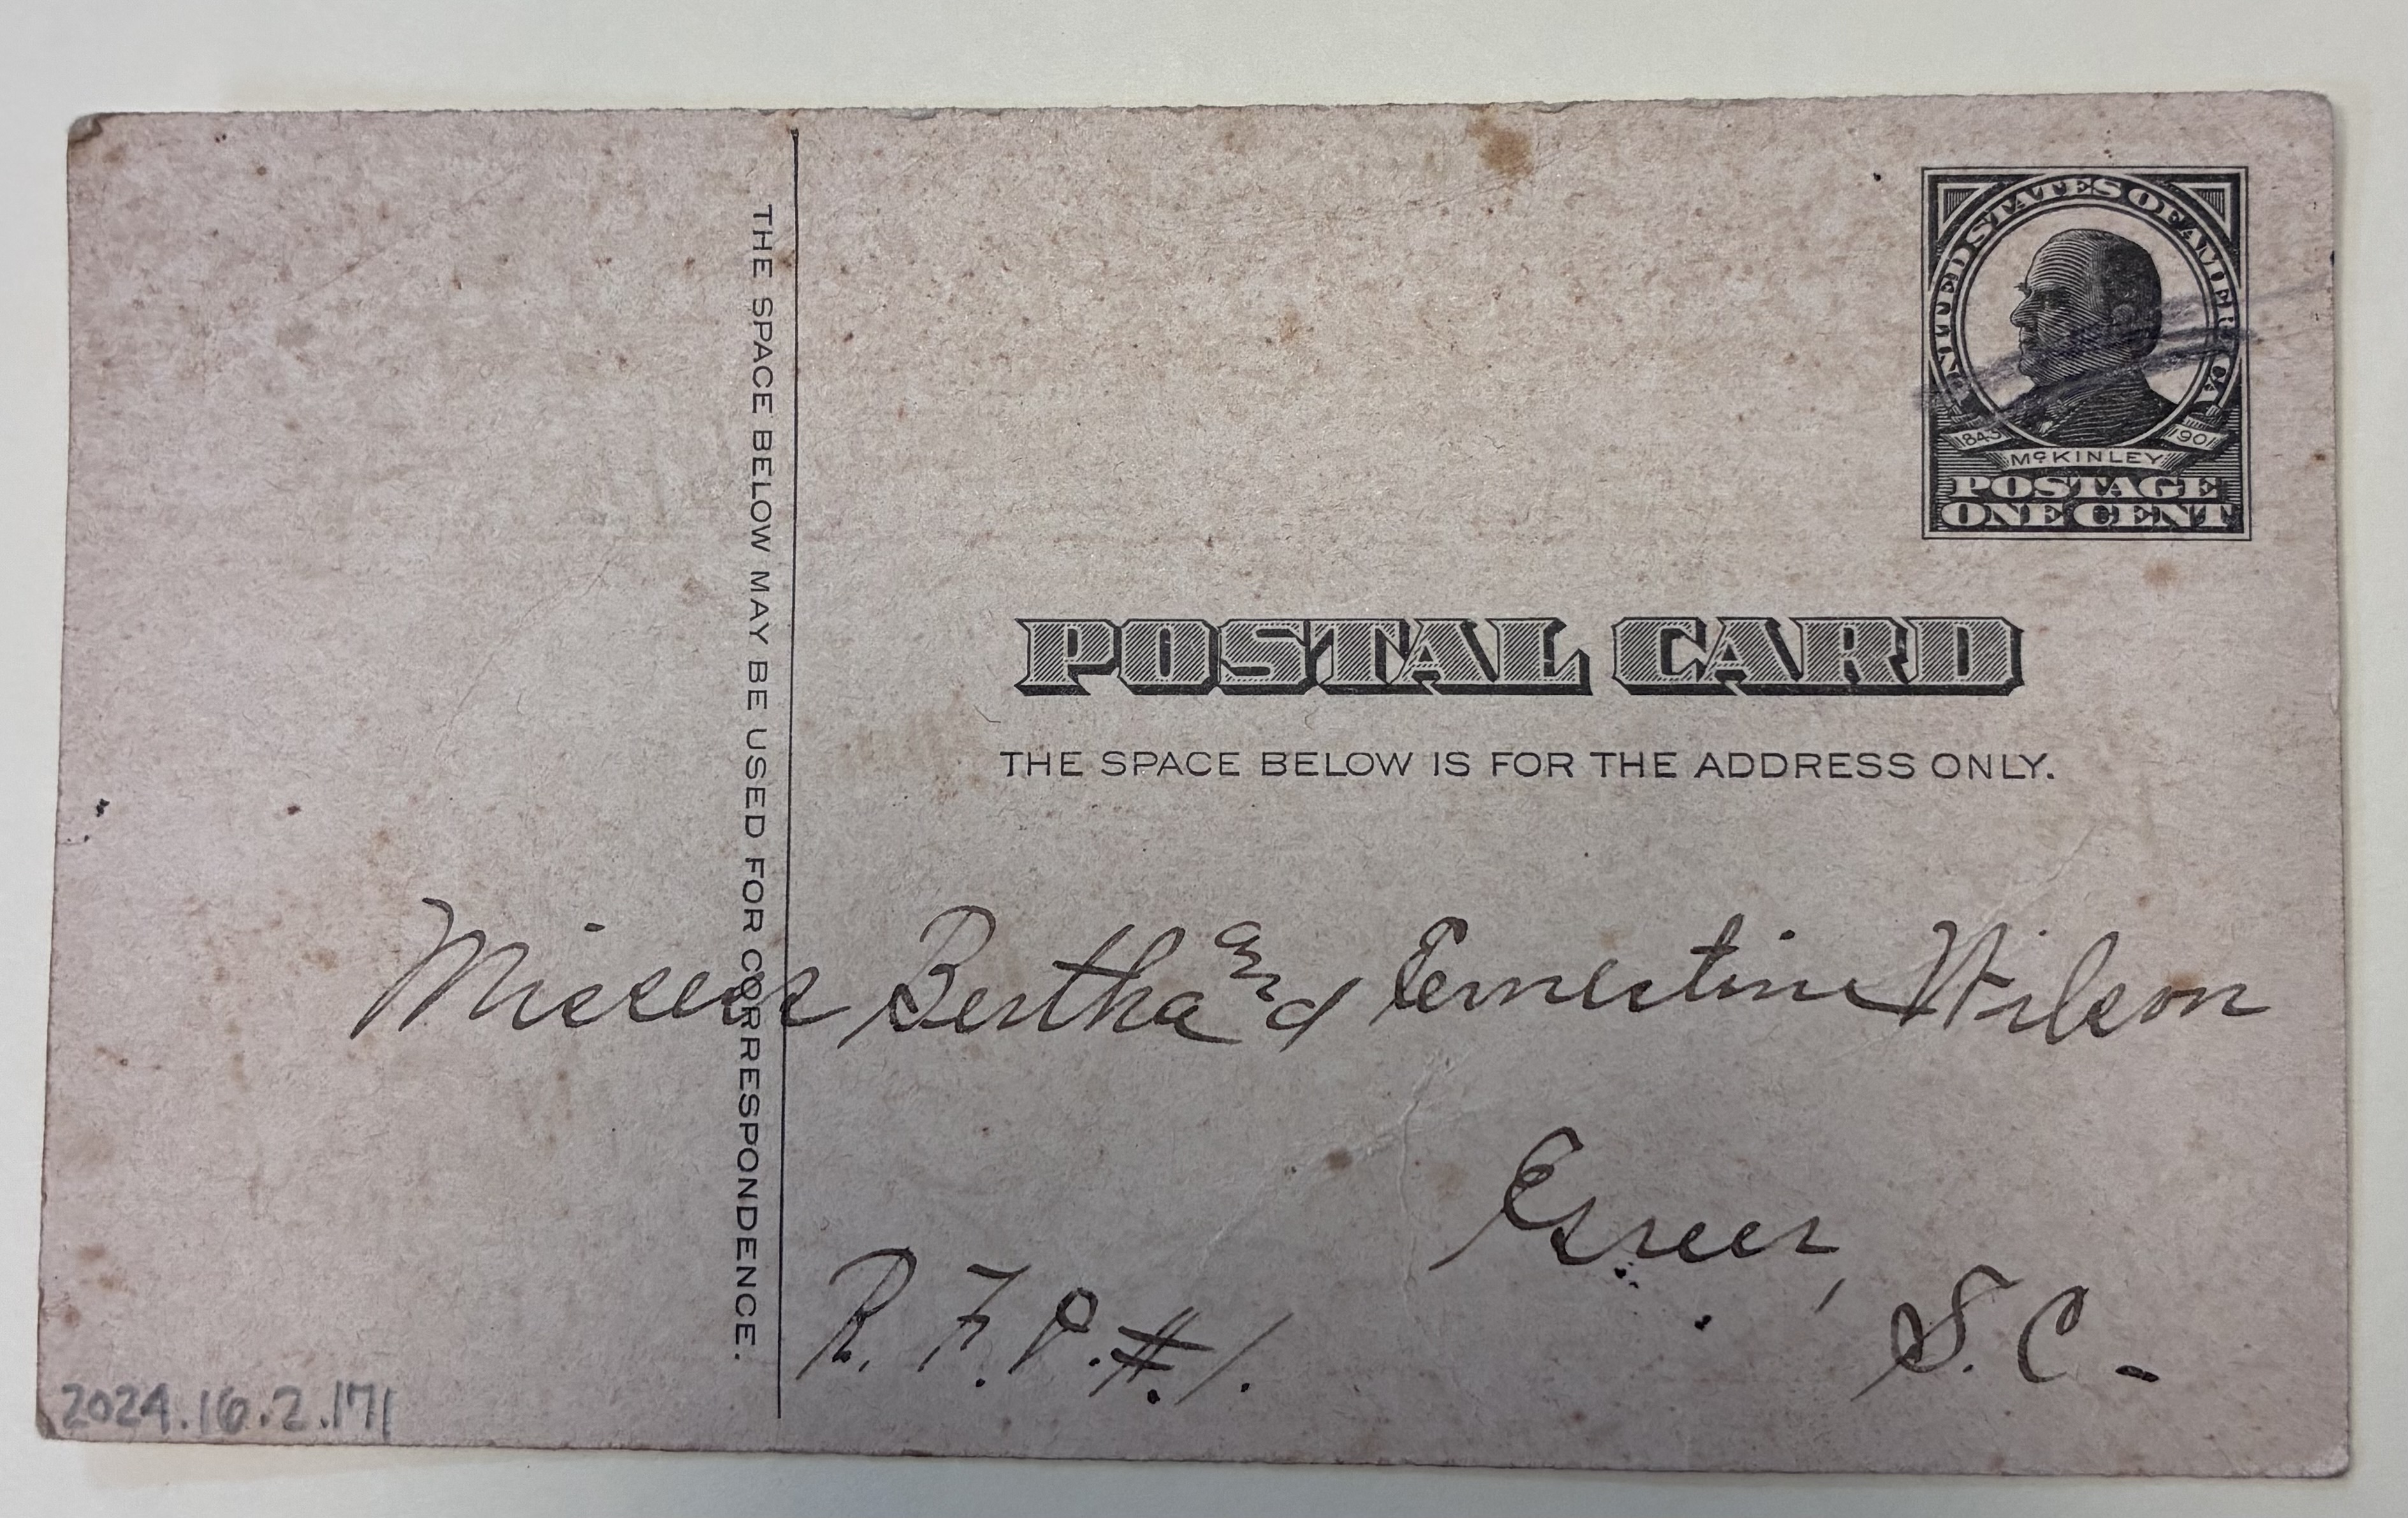 THE SPACE BELOW MAY BE USED FOR CORRESPONDENCE.
UNITED STATES OF AMERICA
1843 1901
McKINLEY
POSTAGE
ONE CENT
POSTAL CARD
THE SPACE BELOW IS FOR THE ADDRESS ONLY.
Misses Bertha and Ernestine Wilson
Greer,
R. F. D. #1.
S. C-
2024.16.2.171